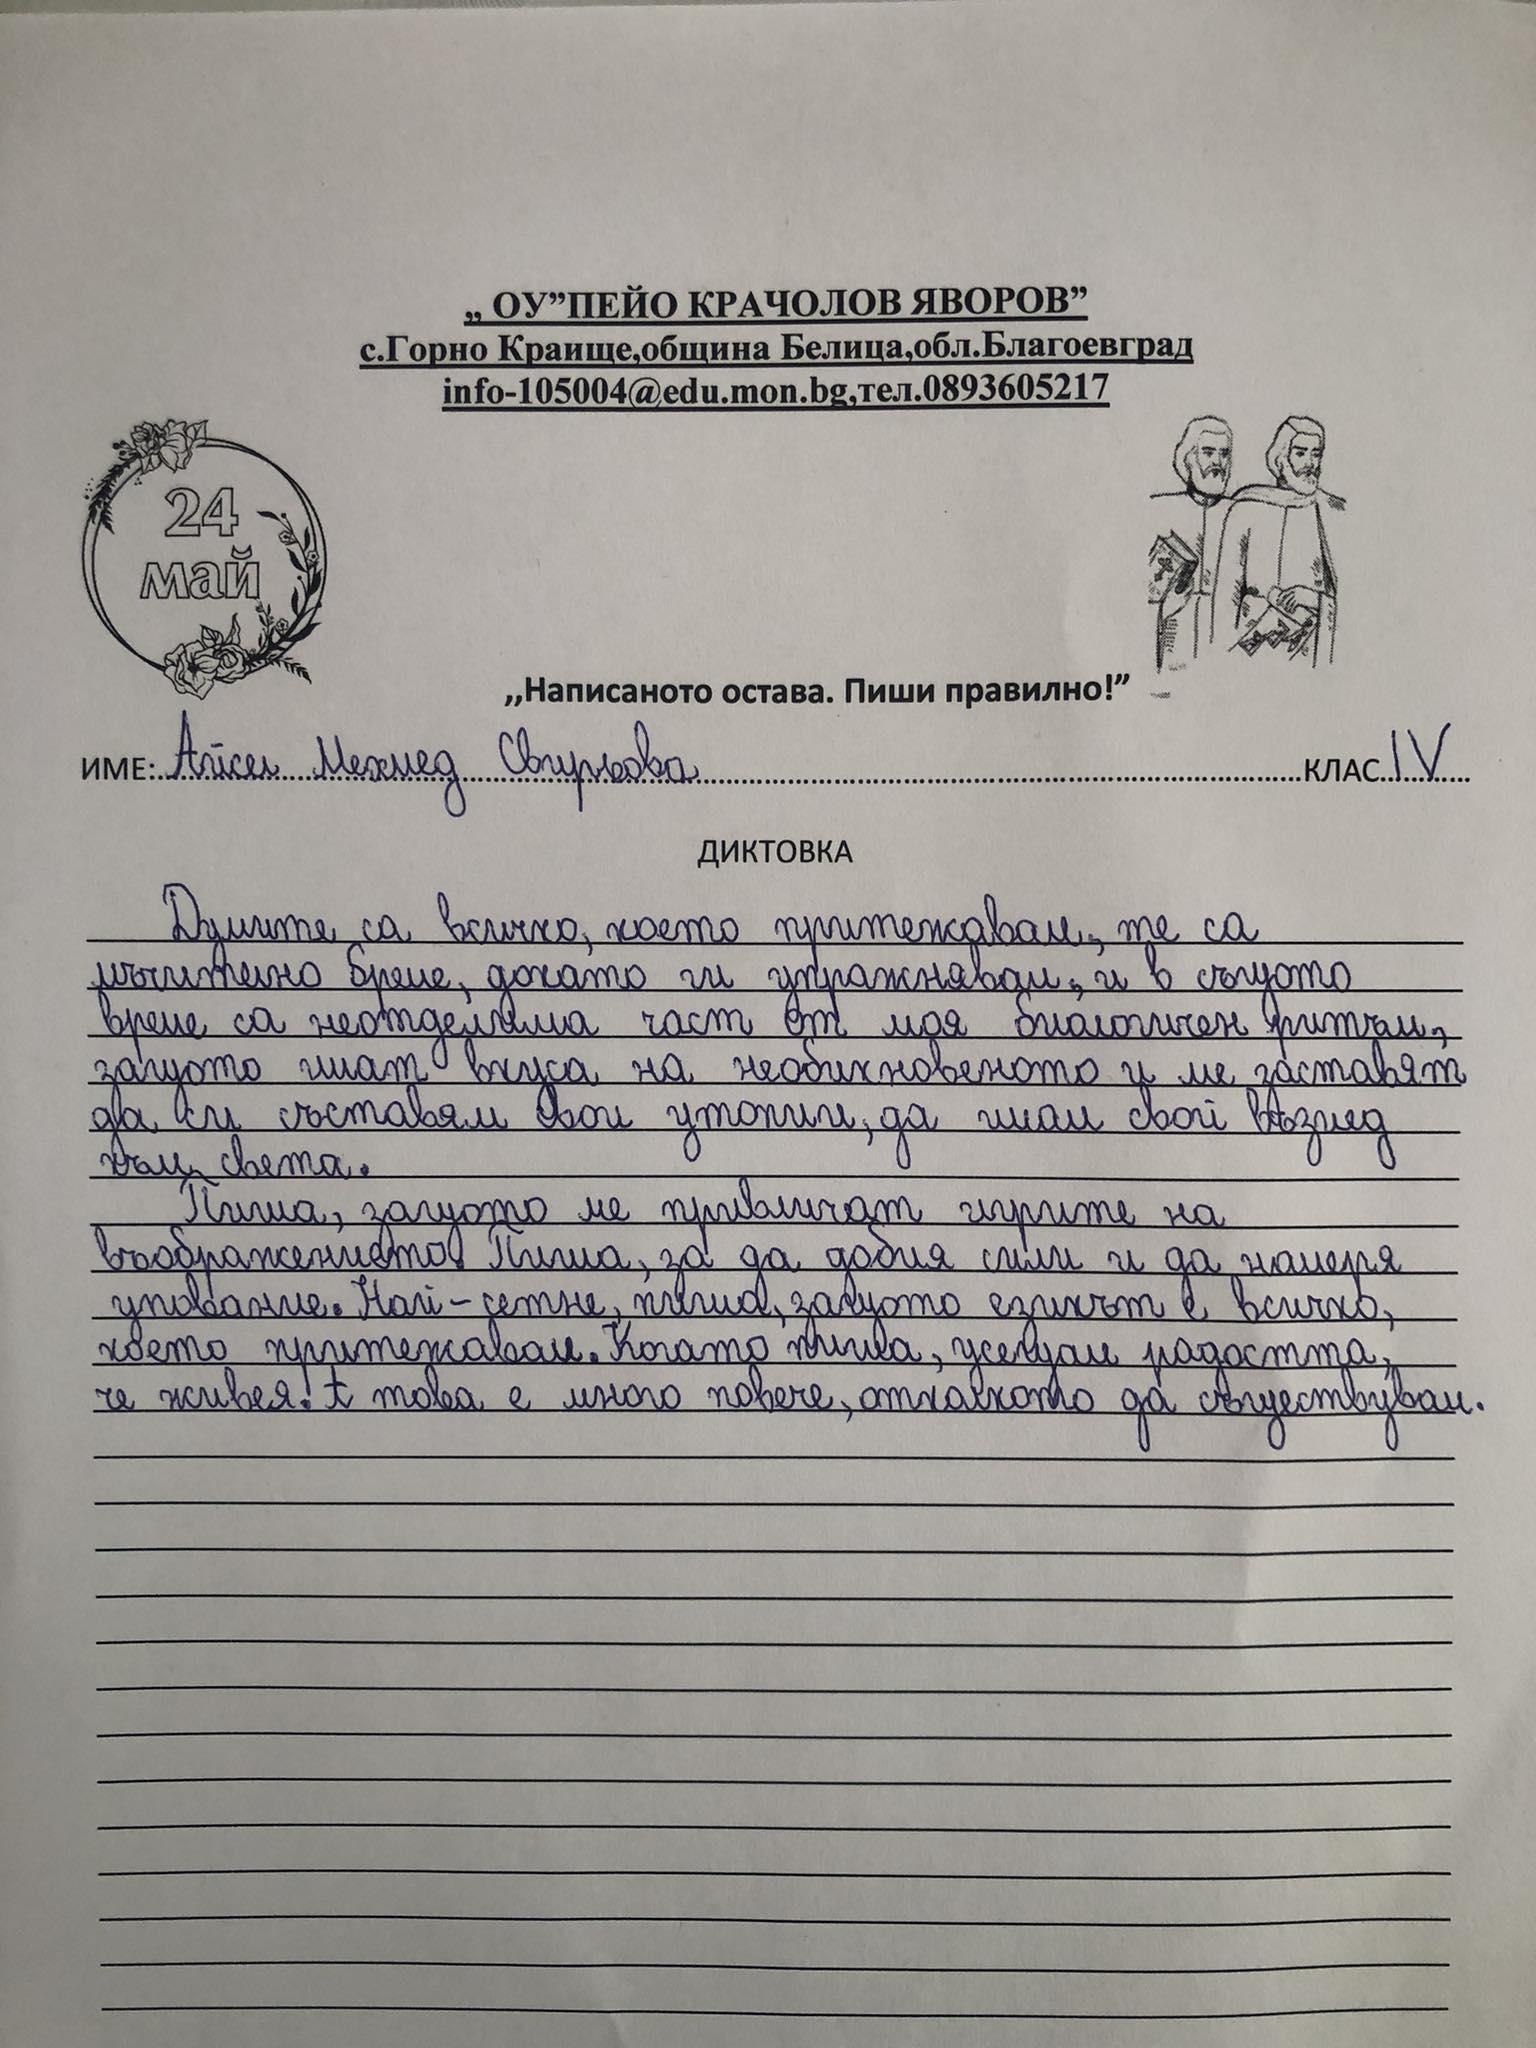 „ ОУ”ПЕЙО КРАЧОЛОВ ЯВОРОВ”
с.Горно Краище,община Белица,обл.Благоевград
info-105004@edu.mon.bg,тел.0893605217
24
май
,,Написаното остава. Пиши правилно!”
ИМЕ: Айсел Мехмед КЛАС IV
ДИКТОВКА
Думите са всичко, което притежавам, те са
мъчително бреме, докато ги упражнявам, и в същото
време са неотделима част от моя биологичен ритъм,
защото имат вкуса на необикновеното и ме заставят
да си съставям свои утопии, да имам свой възглед
към света.
Пиша, защото ме привличат игрите на
въображението. Пиша, за да добия сили и да намеря
упование. Най-сетне, пиша, защото езикът е всичко,
което притежавам. Когато пиша, усещам радостта,
че живея. А това е много повече, отколкото да съществувам.